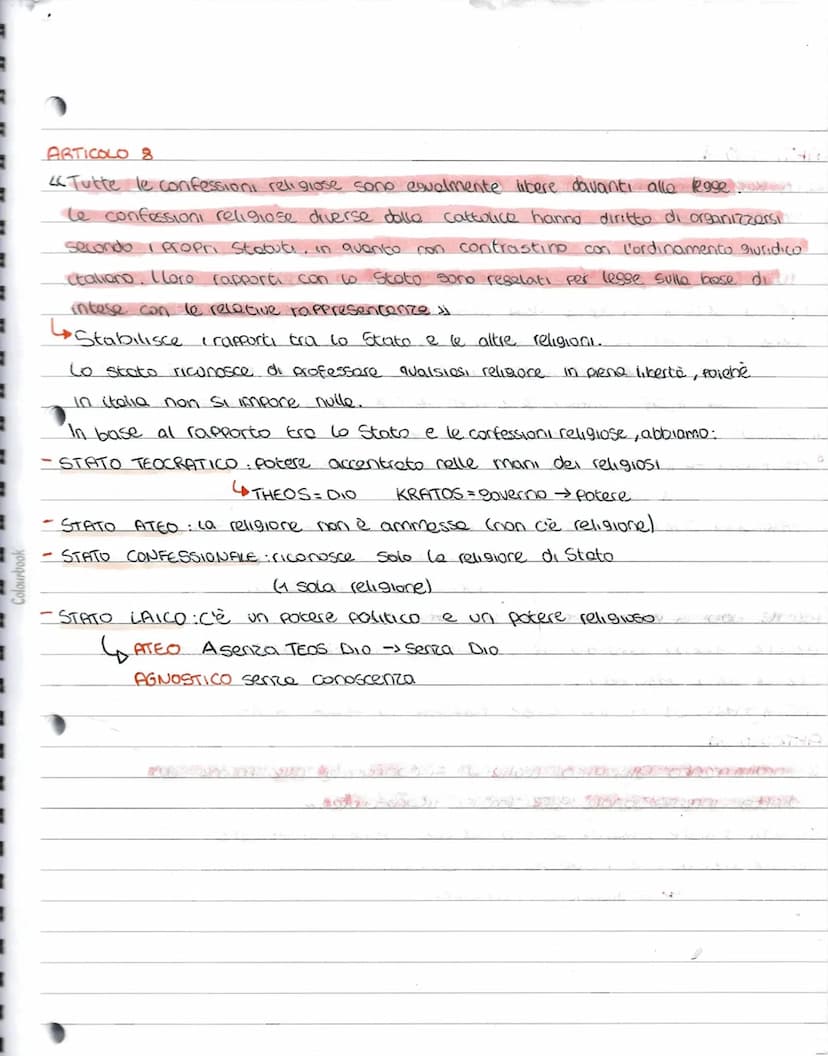 ARTICOLO 8
«Tutte le confessioni religiose sono egualmente libere davanti alla legge.
Le confessioni religiose diverse dalla cattolica hanno diritto di organizzarsi
secondo i propri statuti, in quanto non contrastino con l'ordinamento giuridico
italiano. I loro rapporti con lo Stato sono regolati per legge sulla base di
intese con le relative rappresentanze»
↳Stabilisce i rapporti tra lo Stato e le altre religioni.
Lo stato riconosce di professare qualsiasi religione in piena libertà, poichè
in italia non si impone nulla.
In base al rapporto tra lo Stato e le confessioni religiose, abbiamo:
- STATO TEOCRATICO: potere accentrato nelle mani dei religiosi
↳THEOS = DIO KRATOS = governo → potere
- STATO ATEO: la religione non è ammessa (non c'è religione)
- STATO CONFESSIONALE: riconosce solo la religione di Stato
(1 sola religione)
- STATO LAICO: c'è un potere politico e un potere religioso
↳ ATEO A senza TEOS DIO → senza DIO
AGNOSTICO senza conoscenza
Colourbook